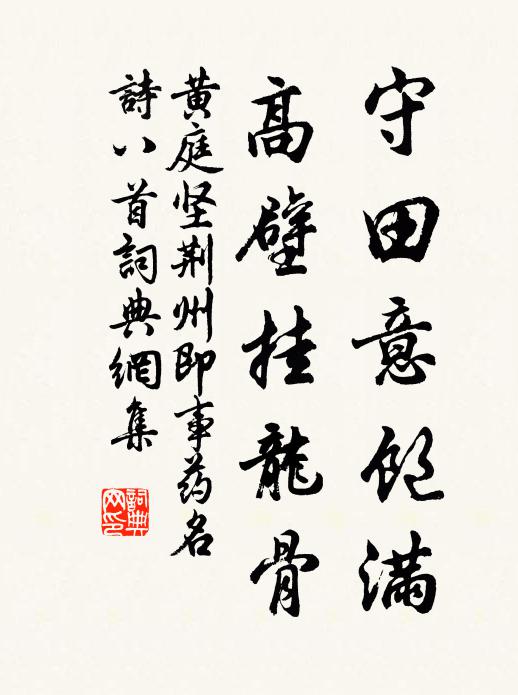 守田意飽滿
高壁挂龍骨
黄庭坚荆州即事药名
詩八首詞典網集
詞典網印